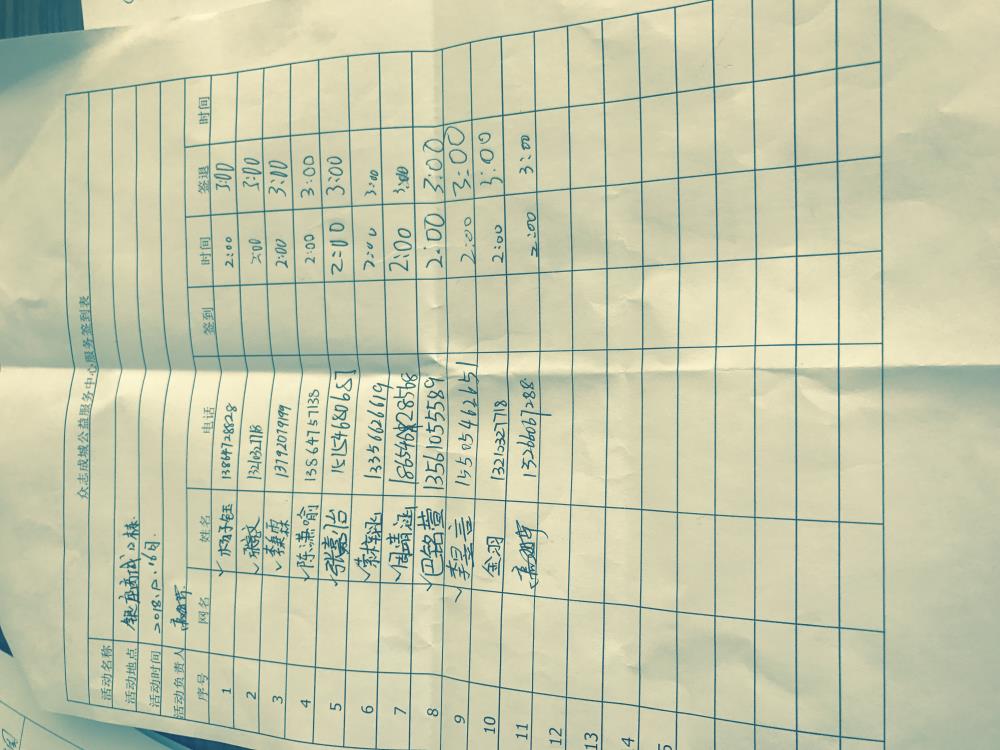 众志成城公益服务中心服务签到表
活动名称
活动地点 银座商城
活动时间 2018.12.16日
活动负责人
序号 网名 姓名 电话 签到 时间 签退 时间
1 杨子钰 13864728828 2:00 3:00
2 2:00 3:00
3 13792079199 2:00 3:00
4 陈潇喻 13864757135 2:00 3:00
5 张嘉怡 15154680657 2:00 3:00
6 13356626619 2:00 3:00
7 周靖涵 2:00 3:00
8 巴铭萱 13561055589 2:00 3:00
9 15505462651 2:00 3:00
10 金羽 13210327718 2:00 3:00
11 2:00 3:00
12
13
4
5